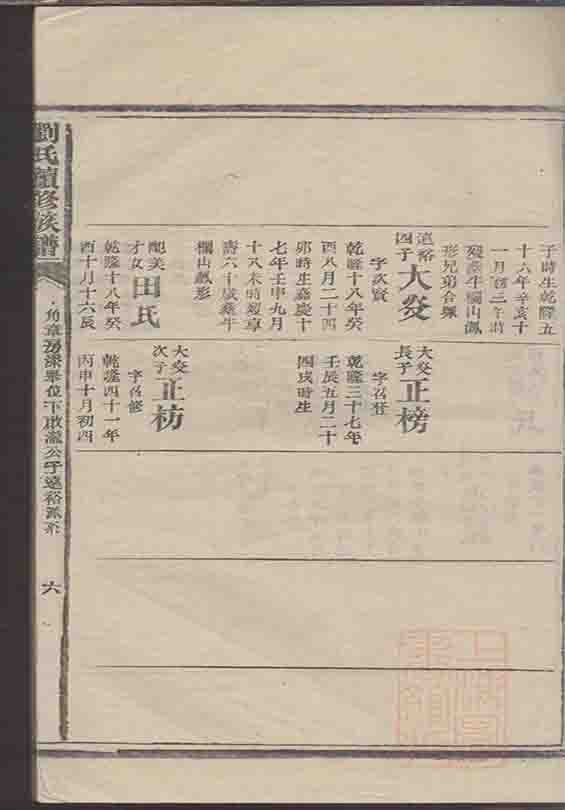 子時生乾隆五
十六年辛亥十
一月初三午時
殁葬牛欄山
形兄弟合塚
遠裕四子 大㸚
字次賓
乾隆十八年癸
酉八月二十四
卯時生嘉慶十
七年壬申九月
十八未時殁享
壽六十歲葬牛
欄山獻形
配美才女 田氏
乾隆十八年癸
酉十月十六辰
大㸚長子 正榜
字召登
乾隆三十七年
壬辰五月二十
四戌時生
大㸚次子 正枋
字召修
乾隆四十一年
丙申十月初四
劉氏續修族譜
角章房 畢位下敢 公子遠裕派系
六